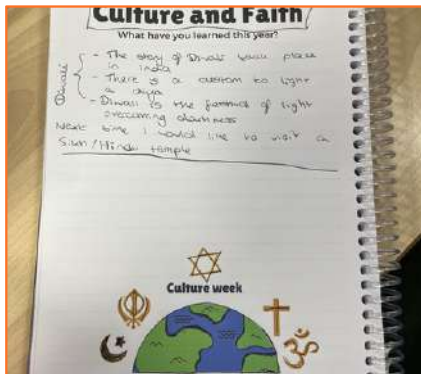 Culture and Faith
What have you learned this year?
Diwali
- The story of Diwali took place
in India
- There is a custom to light
a diya
- Diwali is the festival of light
overcoming darkness
Next time I would like to visit a
Sikh/Hindu temple
Culture week